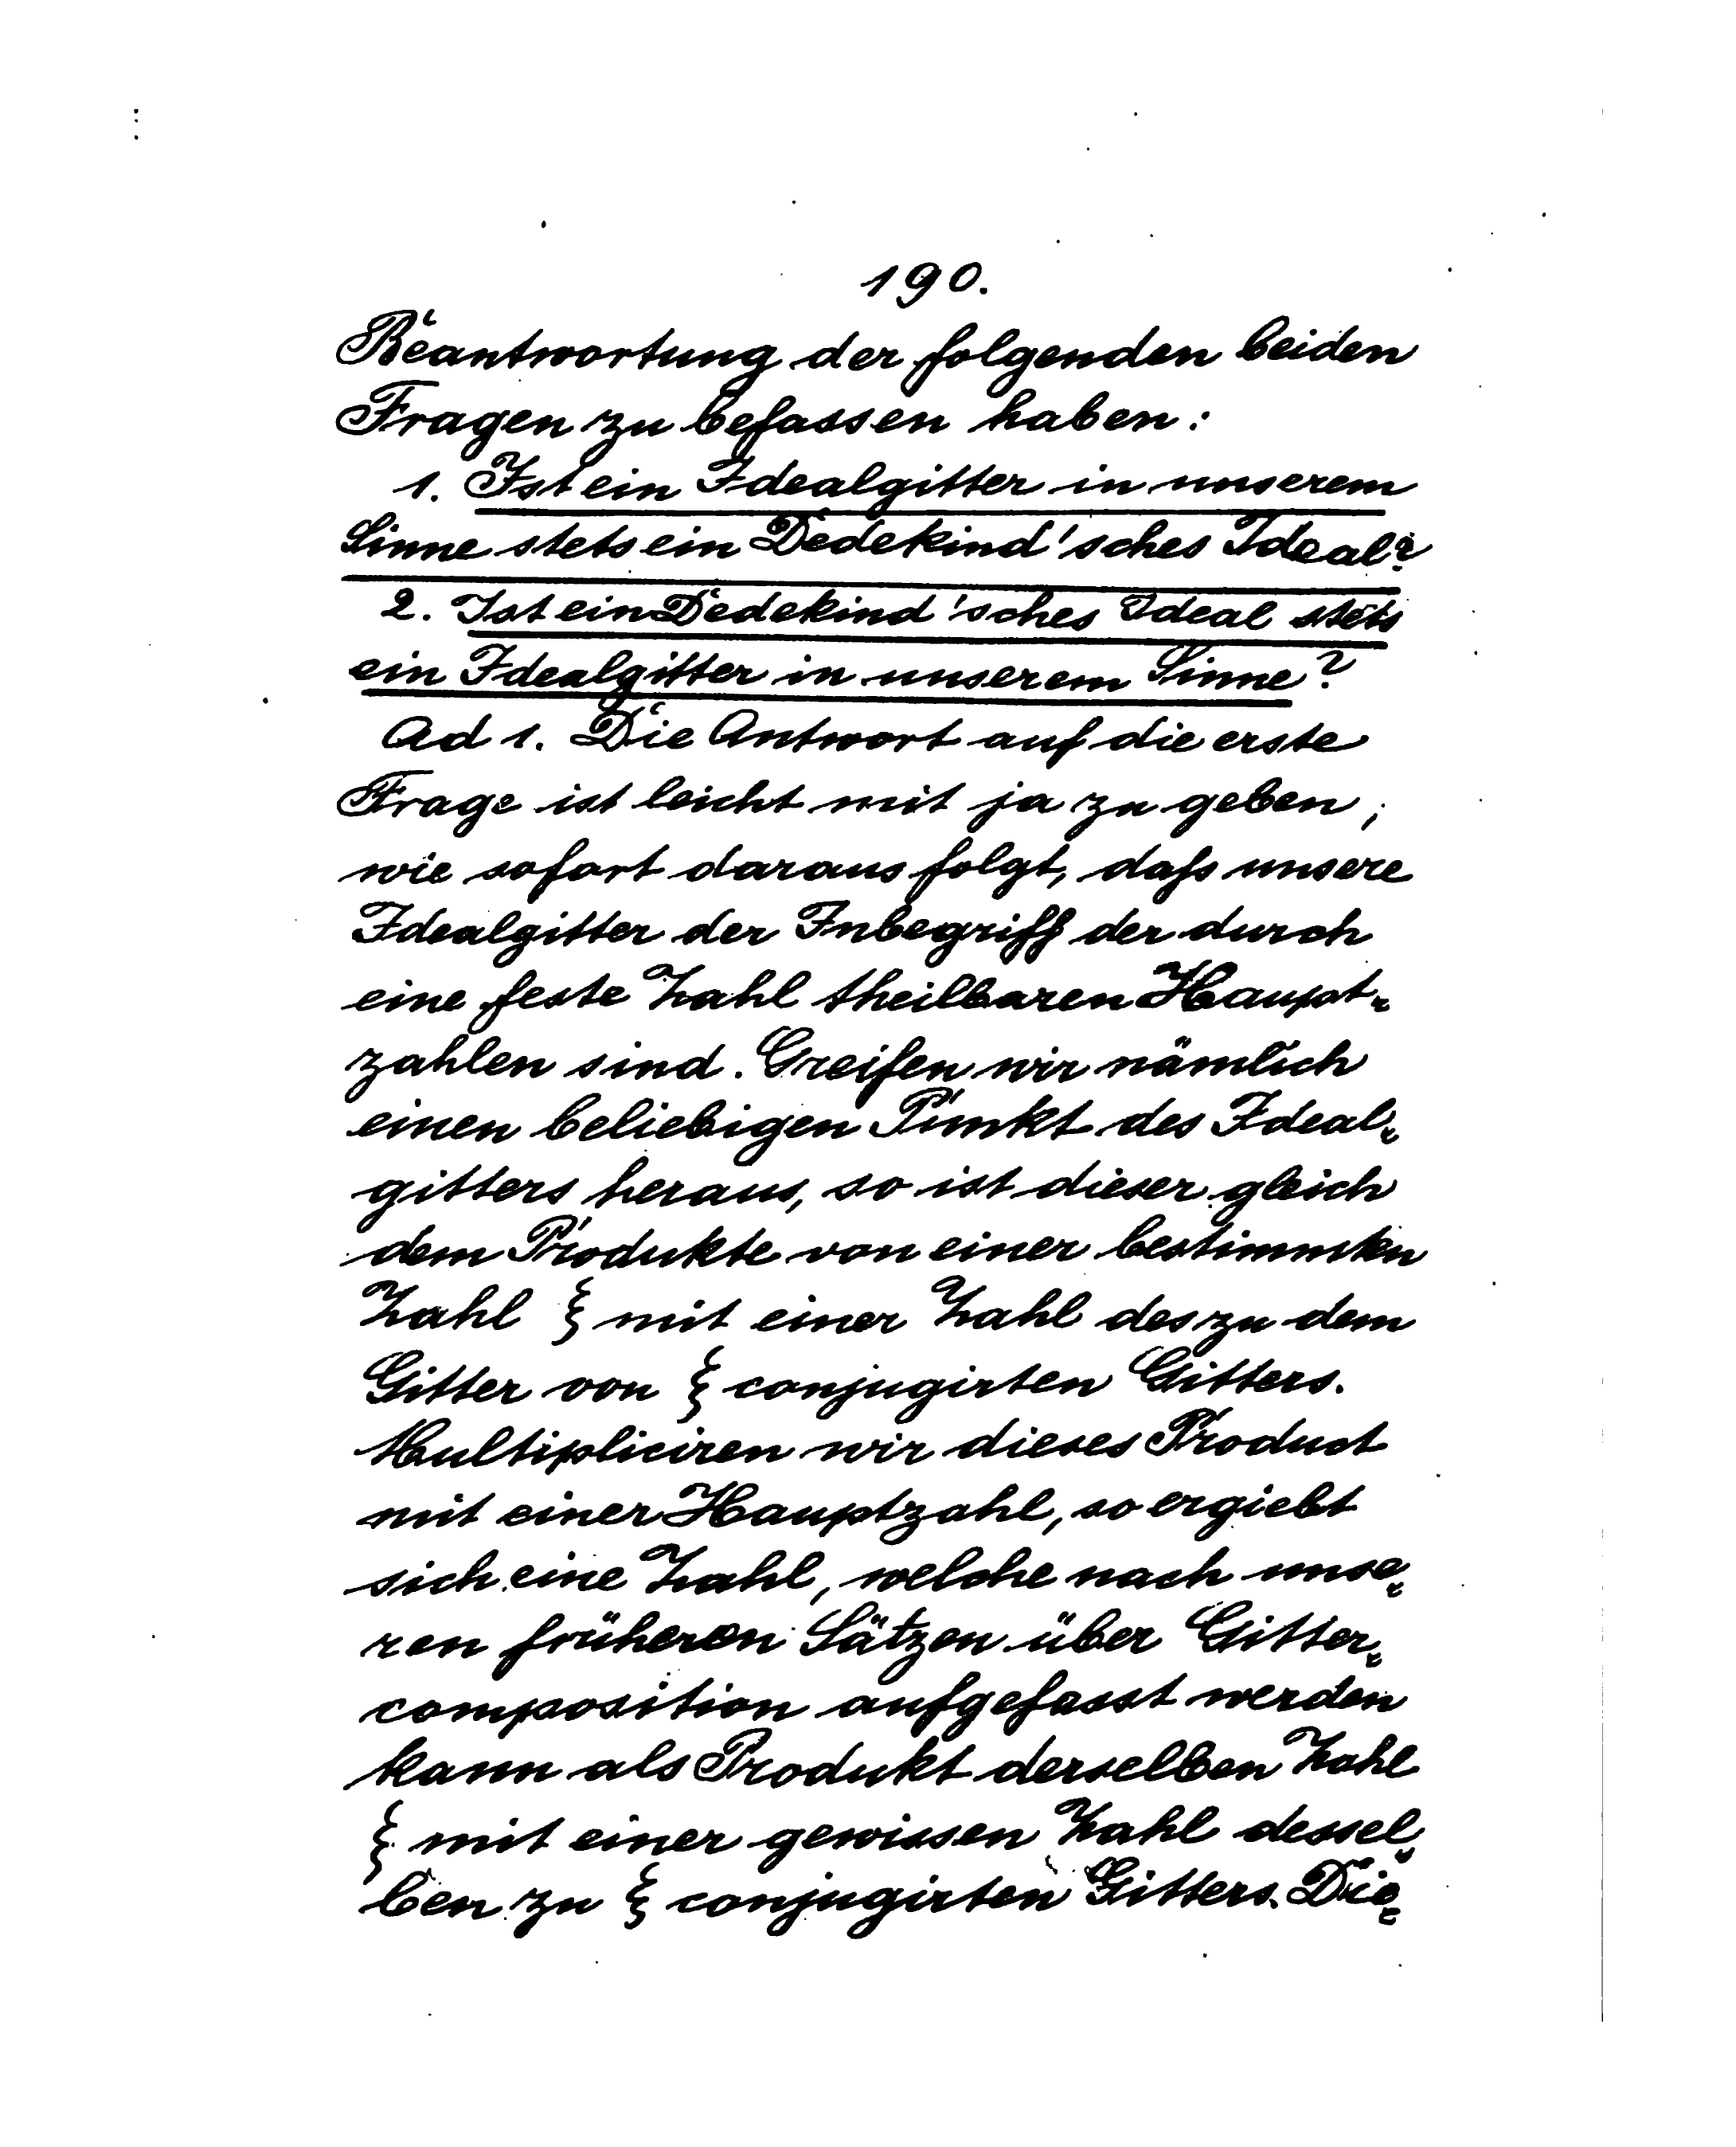 190.
Beantwortung der folgenden beiden
Fragen zu befassen haben:
1. Ist ein Idealgitter in unserem
Sinne stets ein Dedekind'sches Ideal?
2. Ist ein Dedekind'sches Ideal stets
ein Idealgitter in unserem Sinne?
Ad 1. Die Antwort auf die erste
Frage ist leicht mit ja zu geben,
wie sofort daraus folgt, daſs unsere
Idealgitter der Inbegriff der durch
eine feste Zahl theilbaren Haupt-
zahlen sind. Greifen wir nämlich
einen beliebigen Punkt des Ideal-
gitters heraus, so ist dieser gleich
dem Produkte von einer bestimmten
Zahl ξ mit einer Zahl des zu dem
Gitter von ξ conjugirten Gitters.
Multipliciren wir dieses Product
mit einer Hauptzahl, so ergiebt
sich eine Zahl, welche nach unse-
ren früheren Sätzen über Gitter-
composition aufgefasst werden
kann als Produkt derselben Zahl
ξ mit einer gewissen Zahl dessel-
ben zu ξ conjugirten Gitters. Die-